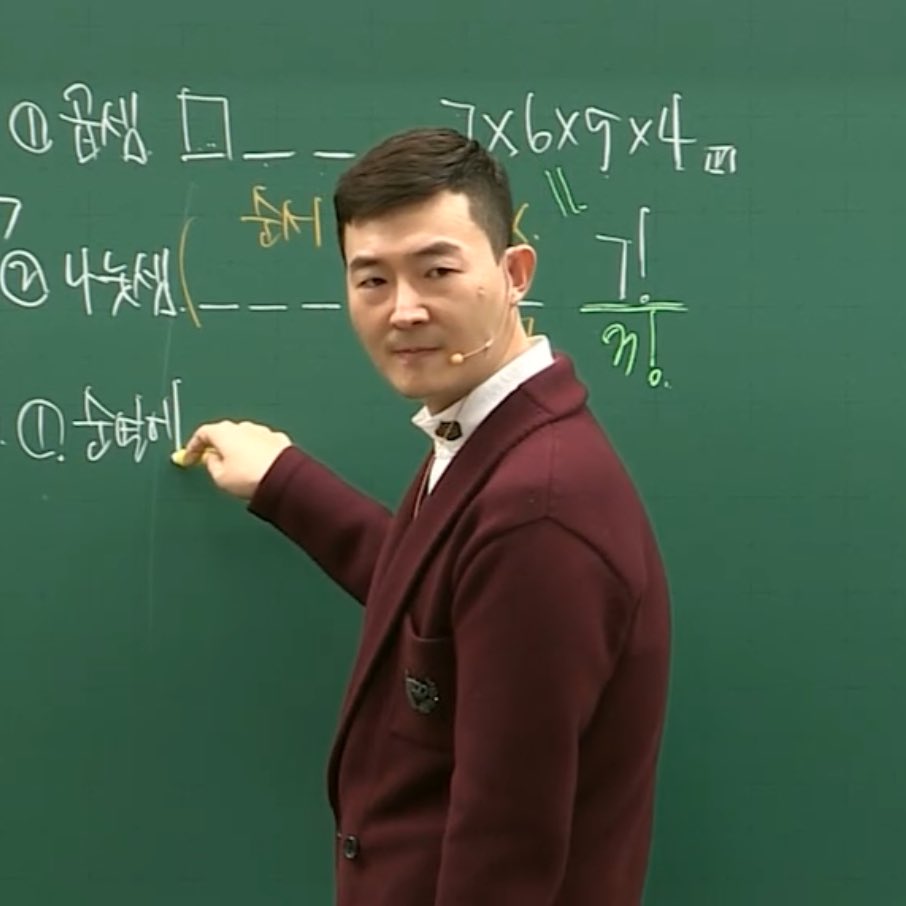 ① 곱셈 □ _ _ 7×6×5×4
7
순서
② 나눗셈 ( _ _ _ 7!/3!
① 순열에